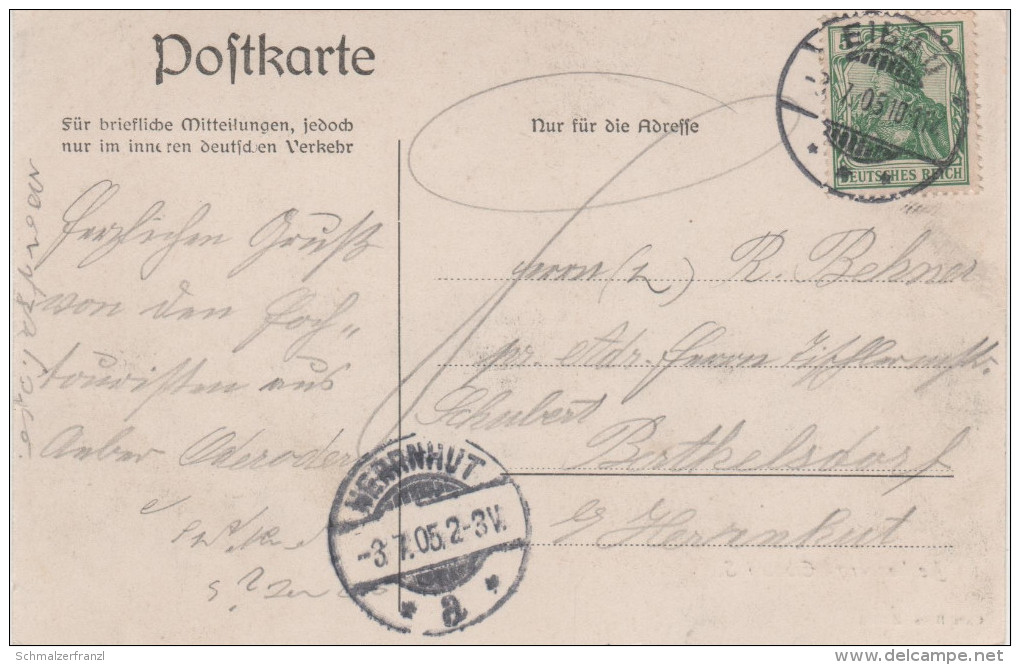 Postkarte
Für briefliche Mitteilungen, jedoch
nur im inneren deutschen Verkehr
Nur für die Adresse
5 5
DEUTSCHES REICH
EIBAU
7.05.10-11
Herzlichen Gruß
von den Hoch-
touristen aus
Herrn (L) R. Behner
pr. Adr. Herrn Tischlermstr.
Schubert
Berthelsdorf
b/ Herrnhut
HERRNHUT
-3.7.05.2-3V.
* a *
Schmalzerfranzl
delcampe.net